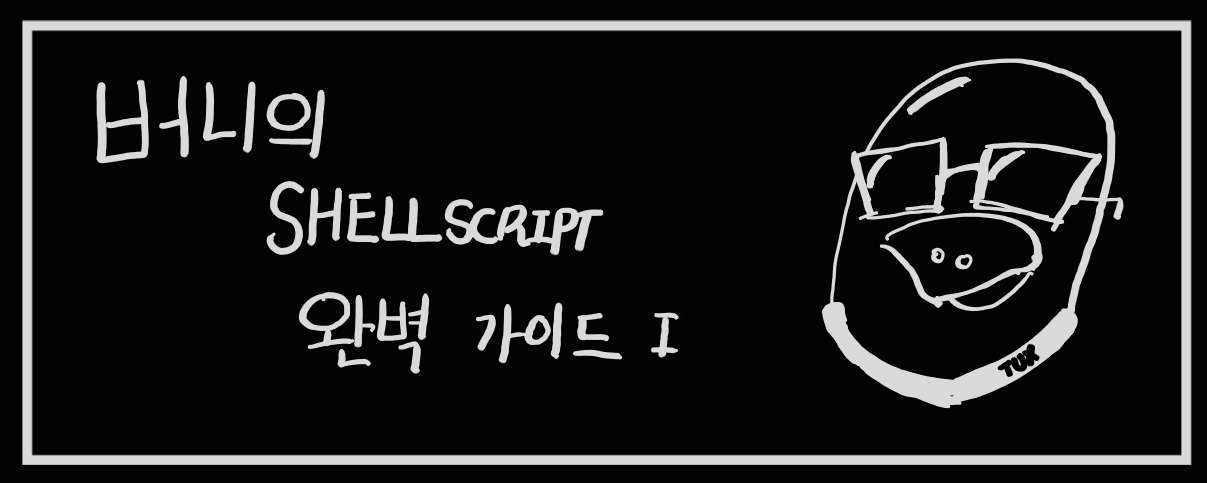 버니의
SHELLSCRIPT
완벽 가이드 I
TUX